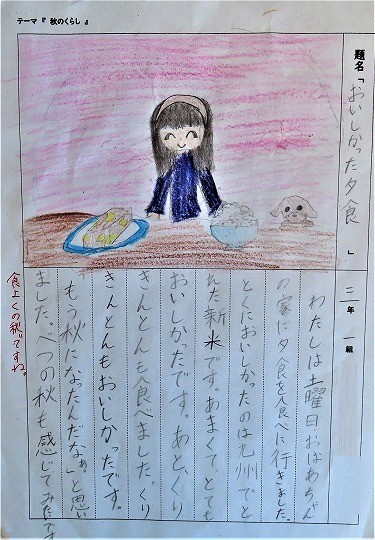 テーマ『 秋のくらし 』
題名「おいしかった夕食」
二年 一組
わたしは土曜日おばあちゃん
の家に夕食を食べに行きました。
とくにおいしかったのは九州でと
れた新米です。あまくて、とても
おいしかったです。あと、くり
きんとんも食べました。くり
きんとんもおいしかったです。
「もう秋になったんだなぁ。」と思い
ました。べつの秋も感じてみたいです
食よくの秋ですね。